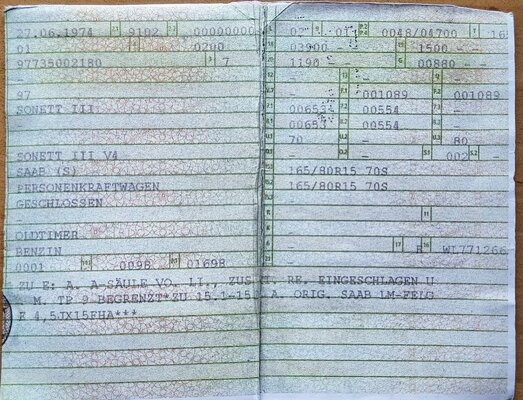 27.06.1974 9102 00000000
01 0200
97735002180 7
-
97
SONETT III
-
SONETT III V4
SAAB (S)
PERSONENKRAFTWAGEN
GESCHLOSSEN
-
OLDTIMER
BENZIN
0001 0098 01698
02 011 0048/04700 165
03900 1500 -
1190 - 00880 -
- - -
- 001089 001089
00653 00554 -
00653 00554 -
70 - 80
- - 002 -
165/80R15 70S
165/80R15 70S
-
-
- R WL771266
ZU E: A. A-SÄULE VO. LI., ZUS. I. RE. EINGESCHLAGEN U
. M. TP 9 BEGRENZT*ZU 15.1-15. A. ORIG. SAAB LM-FELG
E 4,5JX15FHA***